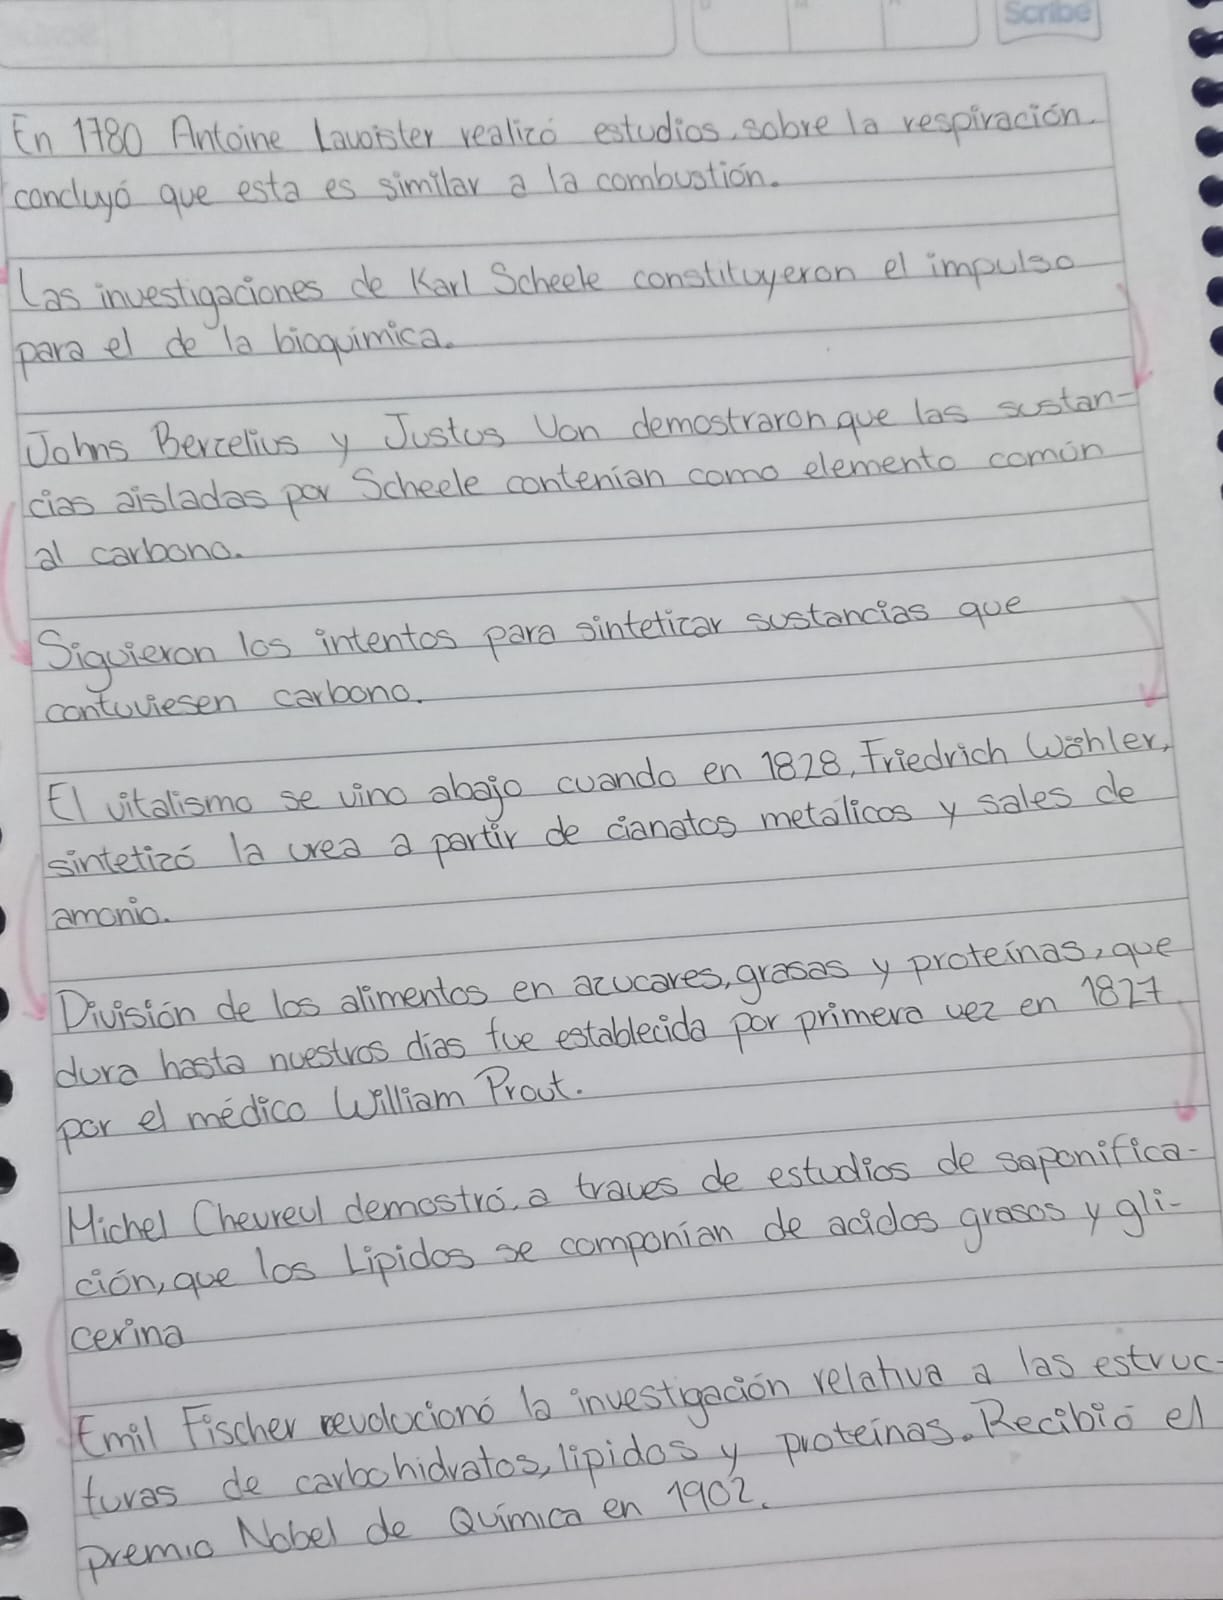 Scribe
En 1780 Antoine Lavoister realizó estudios, sobre la respiración.
concluyó que esta es similar a la combustión.
Las investigaciones de Karl Scheele constituyeron el impulso
para el de la bioquimica.
Johns Bercelius y Justus Von demostraron que las sustan-
cias aisladas por Scheele contenian como elemento común
al carbono.
Siguieron los intentos para sinteticar sustancias que
contuviesen carbono.
El vitalismo se vino abajo cuando en 1828, Friedrich Wöhler,
sintetizó la urea a partir de cianatos metálicos y sales de
amonio.
División de los alimentos en azucares, grasas y proteínas, que
dura hasta nuestros días fue establecida por primera vez en 1827
por el médico William Prout.
Michel Chevreul demostró, a traves de estudios de saponifica-
ción, que los Lipidos se componían de acidos grasos y gli-
cerina
Emil Fischer revolucionó la investigación relativa a las estruc-
turas de carbohidratos, lipidos y proteínas. Recibió el
premio Nobel de Química en 1902.